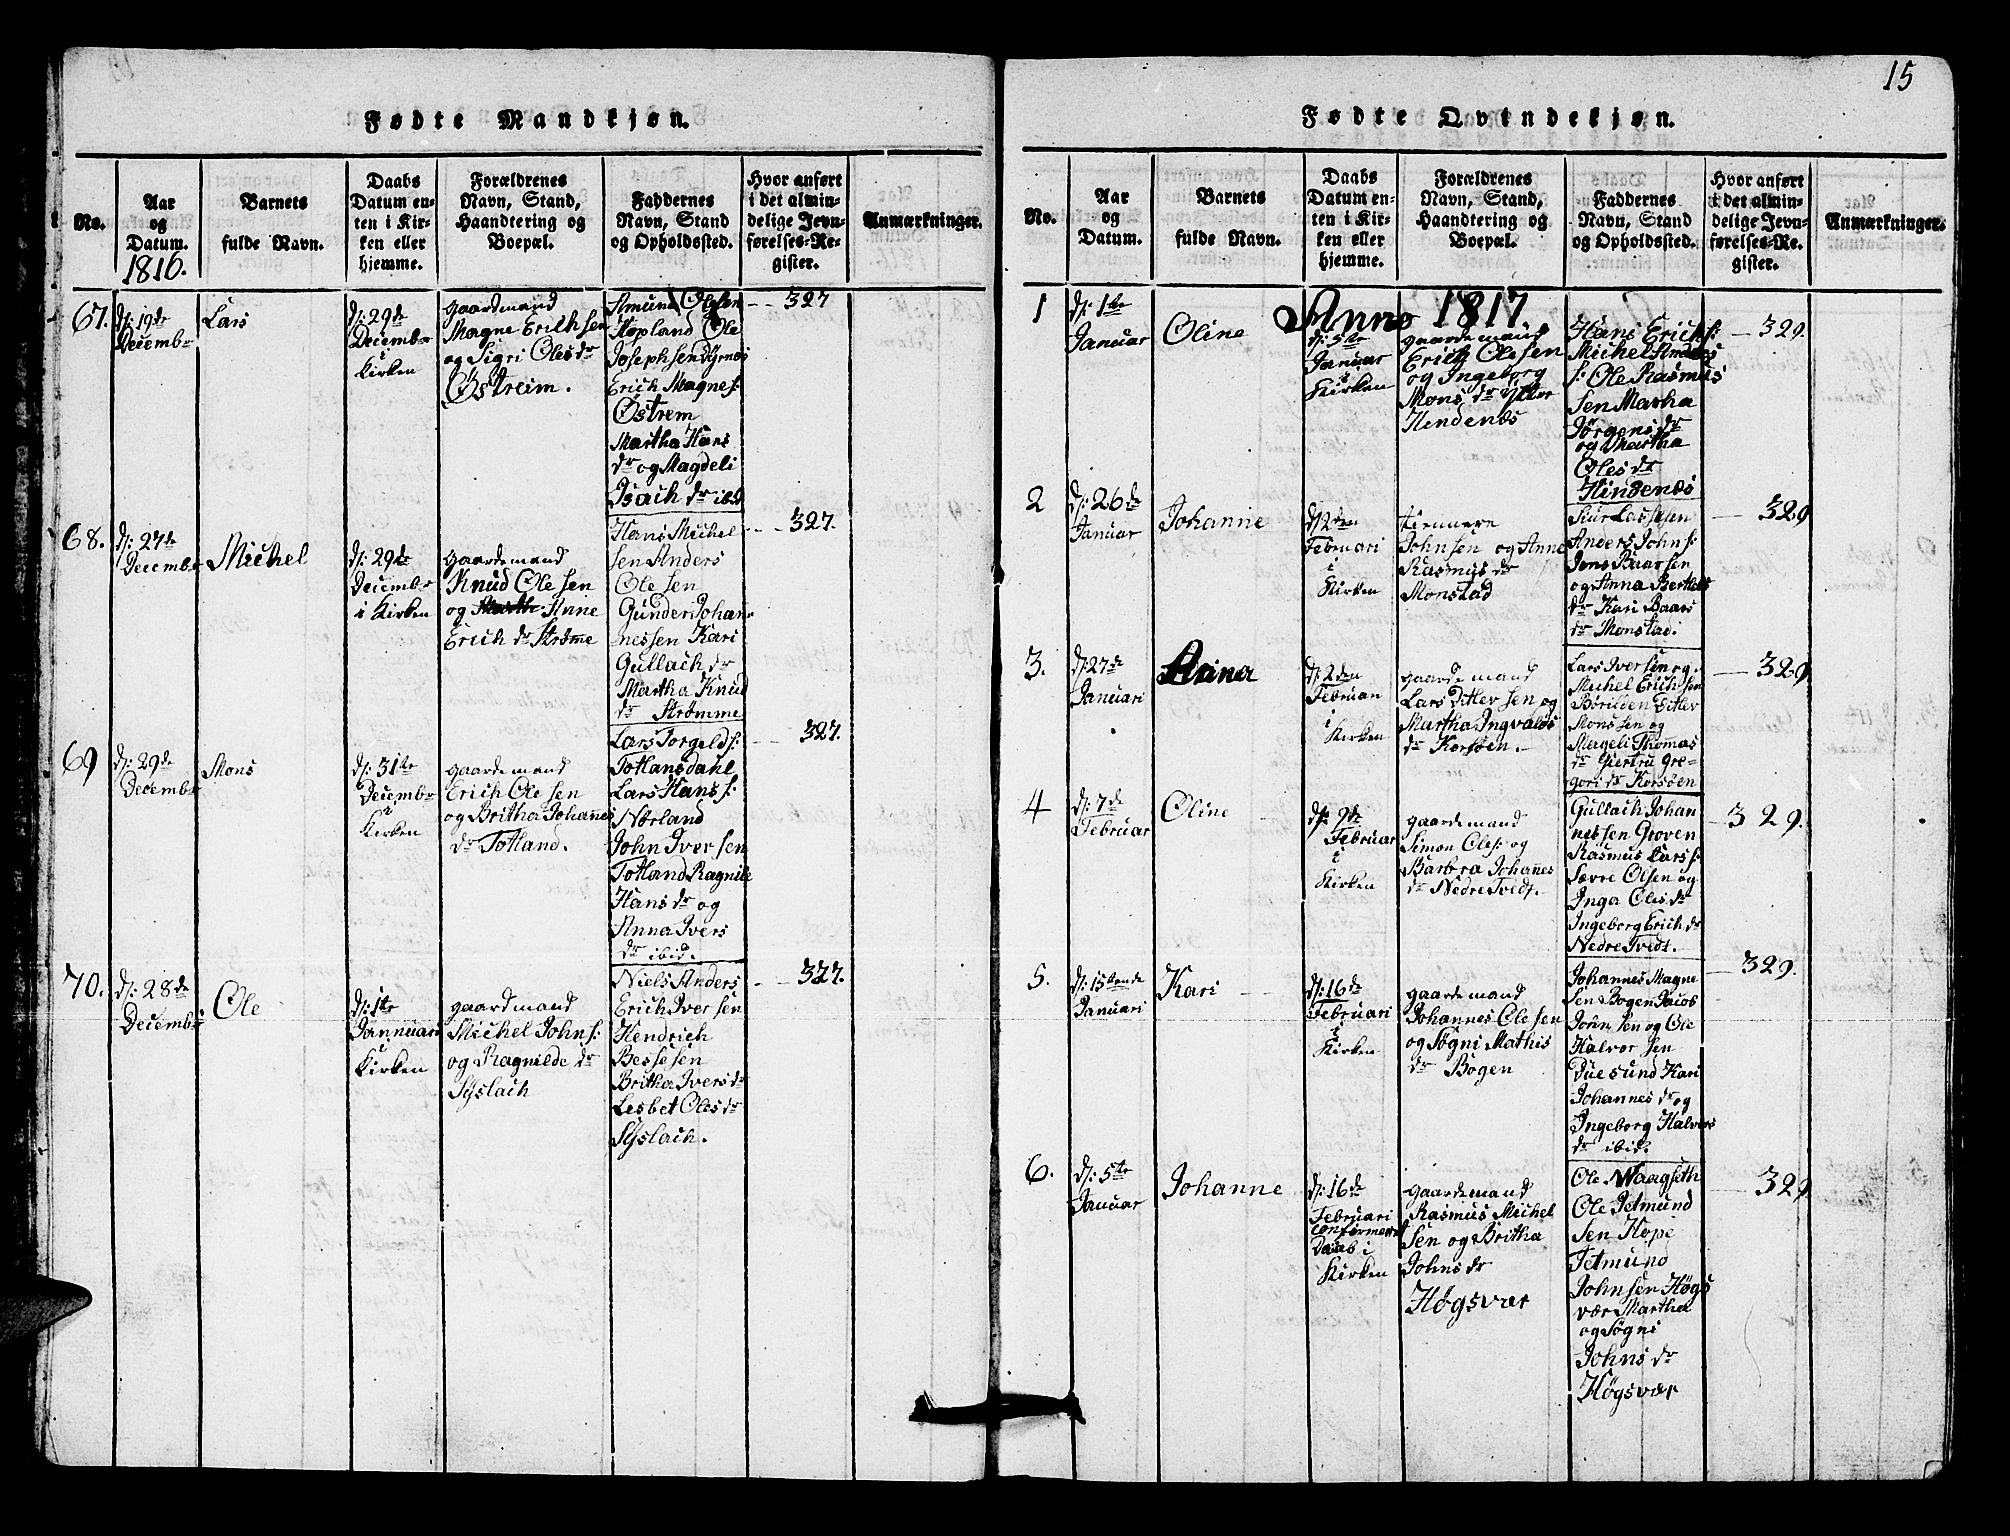 15
Fødte Mandkjøn.
No.
Aar
og
Datum.
1816.
Barnets
fulde Navn.
Daabs
Datum en-
ten i Kir-
ken eller
hjemme.
Forældrenes
Navn, Stand,
Haandtering og
Boepæl.
Faddernes
Navn, Stand
og Opholdssted.
Hvor anført
i det almin-
delige Jevn-
førelses-Re-
gister.
Anmærkninger.
67.
d: 19de
Decembr
Lars
d: 29de
Decembr
i
Kirken
gaardmand
Magne Erichsen
og Sigri Olesdr
Østreim.
Amund Olesen
Hopland Ole
Josephsen Dyrnes
Erich Magnes:
Østrem
Martha Hans
dr og Magdeli
Isach dr ibid
327
68.
d: 27de
Decembr
Michel
d: 29de
Decembr
i Kirken
gaardemand
Knud Olesen
og Anne
Erich dr Strømme
Hans Michel
sen Anders
Olesen
Gunder Johan
nessen Kari
Gullach dr
Martha Knud
dr Strømme
327.
69
d: 29de
Decembr
Mons
d: 31te
Decembr
i
Kirken
gaardemand
Erich Olesen
og Britha Johannes
dr Totland.
Lars Torgelds:
Totlansdahl
Lars Hans s:
Nørland
John Iversen
Totland Ragnile
Hans dr og
Anna Ivers
dr ibid.
327.
70.
d: 28de
Decembr
Ole
d: 1te
Jannuari
i
Kirken
gaardmand
Michel Johns:
og Ragnilde dr
Syslach
Niels Anders
Erich Iversen
Hendrich
Bessesen
Britha Iversdr
Lesbet Olesdr
Syslach.
327.
Fødte Qvindekjøn.
No.
Aar
og
Datum.
Barnets
fulde Navn.
Daabs
Datum en-
ten i Kir-
ken eller
hjemme.
Forældrenes
Navn, Stand,
Haandtering og
Boepæl.
Faddernes
Navn, Stand
og Opholdssted.
Hvor anført
i det almin-
delige Jevn-
førelses-Re-
gister.
Anmærkninger.
Anno 1817.
1
d: 1te
Januar
Oline
d: 5te
Januar
i
Kirken
gaardemand
Erich Olesen
og Ingeborg
Mons dr Ytter
Hendenæs
Hans Erichs:
Michel Andes
s: Ole Rasmus
sen Martha
Jørgensdr
og Martha
Olesdr
Hindenæs
329.
2
d: 26de
Januar
Johanne
d 2den
Februari
i
Kirken
tienuere
Johnsen og Anne
Rasmus dr
Monstad
Siur Lassesen
Anders Johns:
Jens Baarsen
og Anna Berthels
dr Kari Baars
dr Monstad.
329
3.
d: 27de
Januari
Anna
d: 2den
Februari
i
Kirken
gaardemand
Lars Ditlevsen og
Martha Ingvalds
dr Korsøen.
Lars Iversen og
Michel Erichsen
Ditlev
Monssen og
Margeli Thomas
dr Giertru Gre-
gori dr Korsøen
329
4
d: 7de
Februar
Oline
d: 9de
Februar
i
Kirken
gaardemand
Simon Oles: og
Barbra Johannes
dr Nedre Tvedt.
Gullach Johan
nessen Groven
Rasmus Lars s:
Sævre Olsen og
Inga Olesdr
Ingeborg Erich dr
Nedre Tvedt.
329.
5.
d: 15tende
Januari
Kari
d: 16de
Februari
i
Kirken
gaardemand
Johannes Olesen
og Søgni Mathis
dr Bogen
Johannes Magne
sen Bogen Jacob
John sen og Ole
Halvor sen
Duesund Kari
Johannes dr og
Ingeborg Halvors
dr ibid.
329.
6.
d: 5te
Januar
Johanne
d: 16de
Februari
Confirmeret
Daab i
Kirken
gaardemand
Rasmus Michel
sen og Britha
Johnsdr
Høgsvær
Ole Waagseth
Ole Jetmund
sen Hope
Jetmund
Johnsen Høgs
vær Marthe
og Søgni
Johnsdr
Høgsvær
329